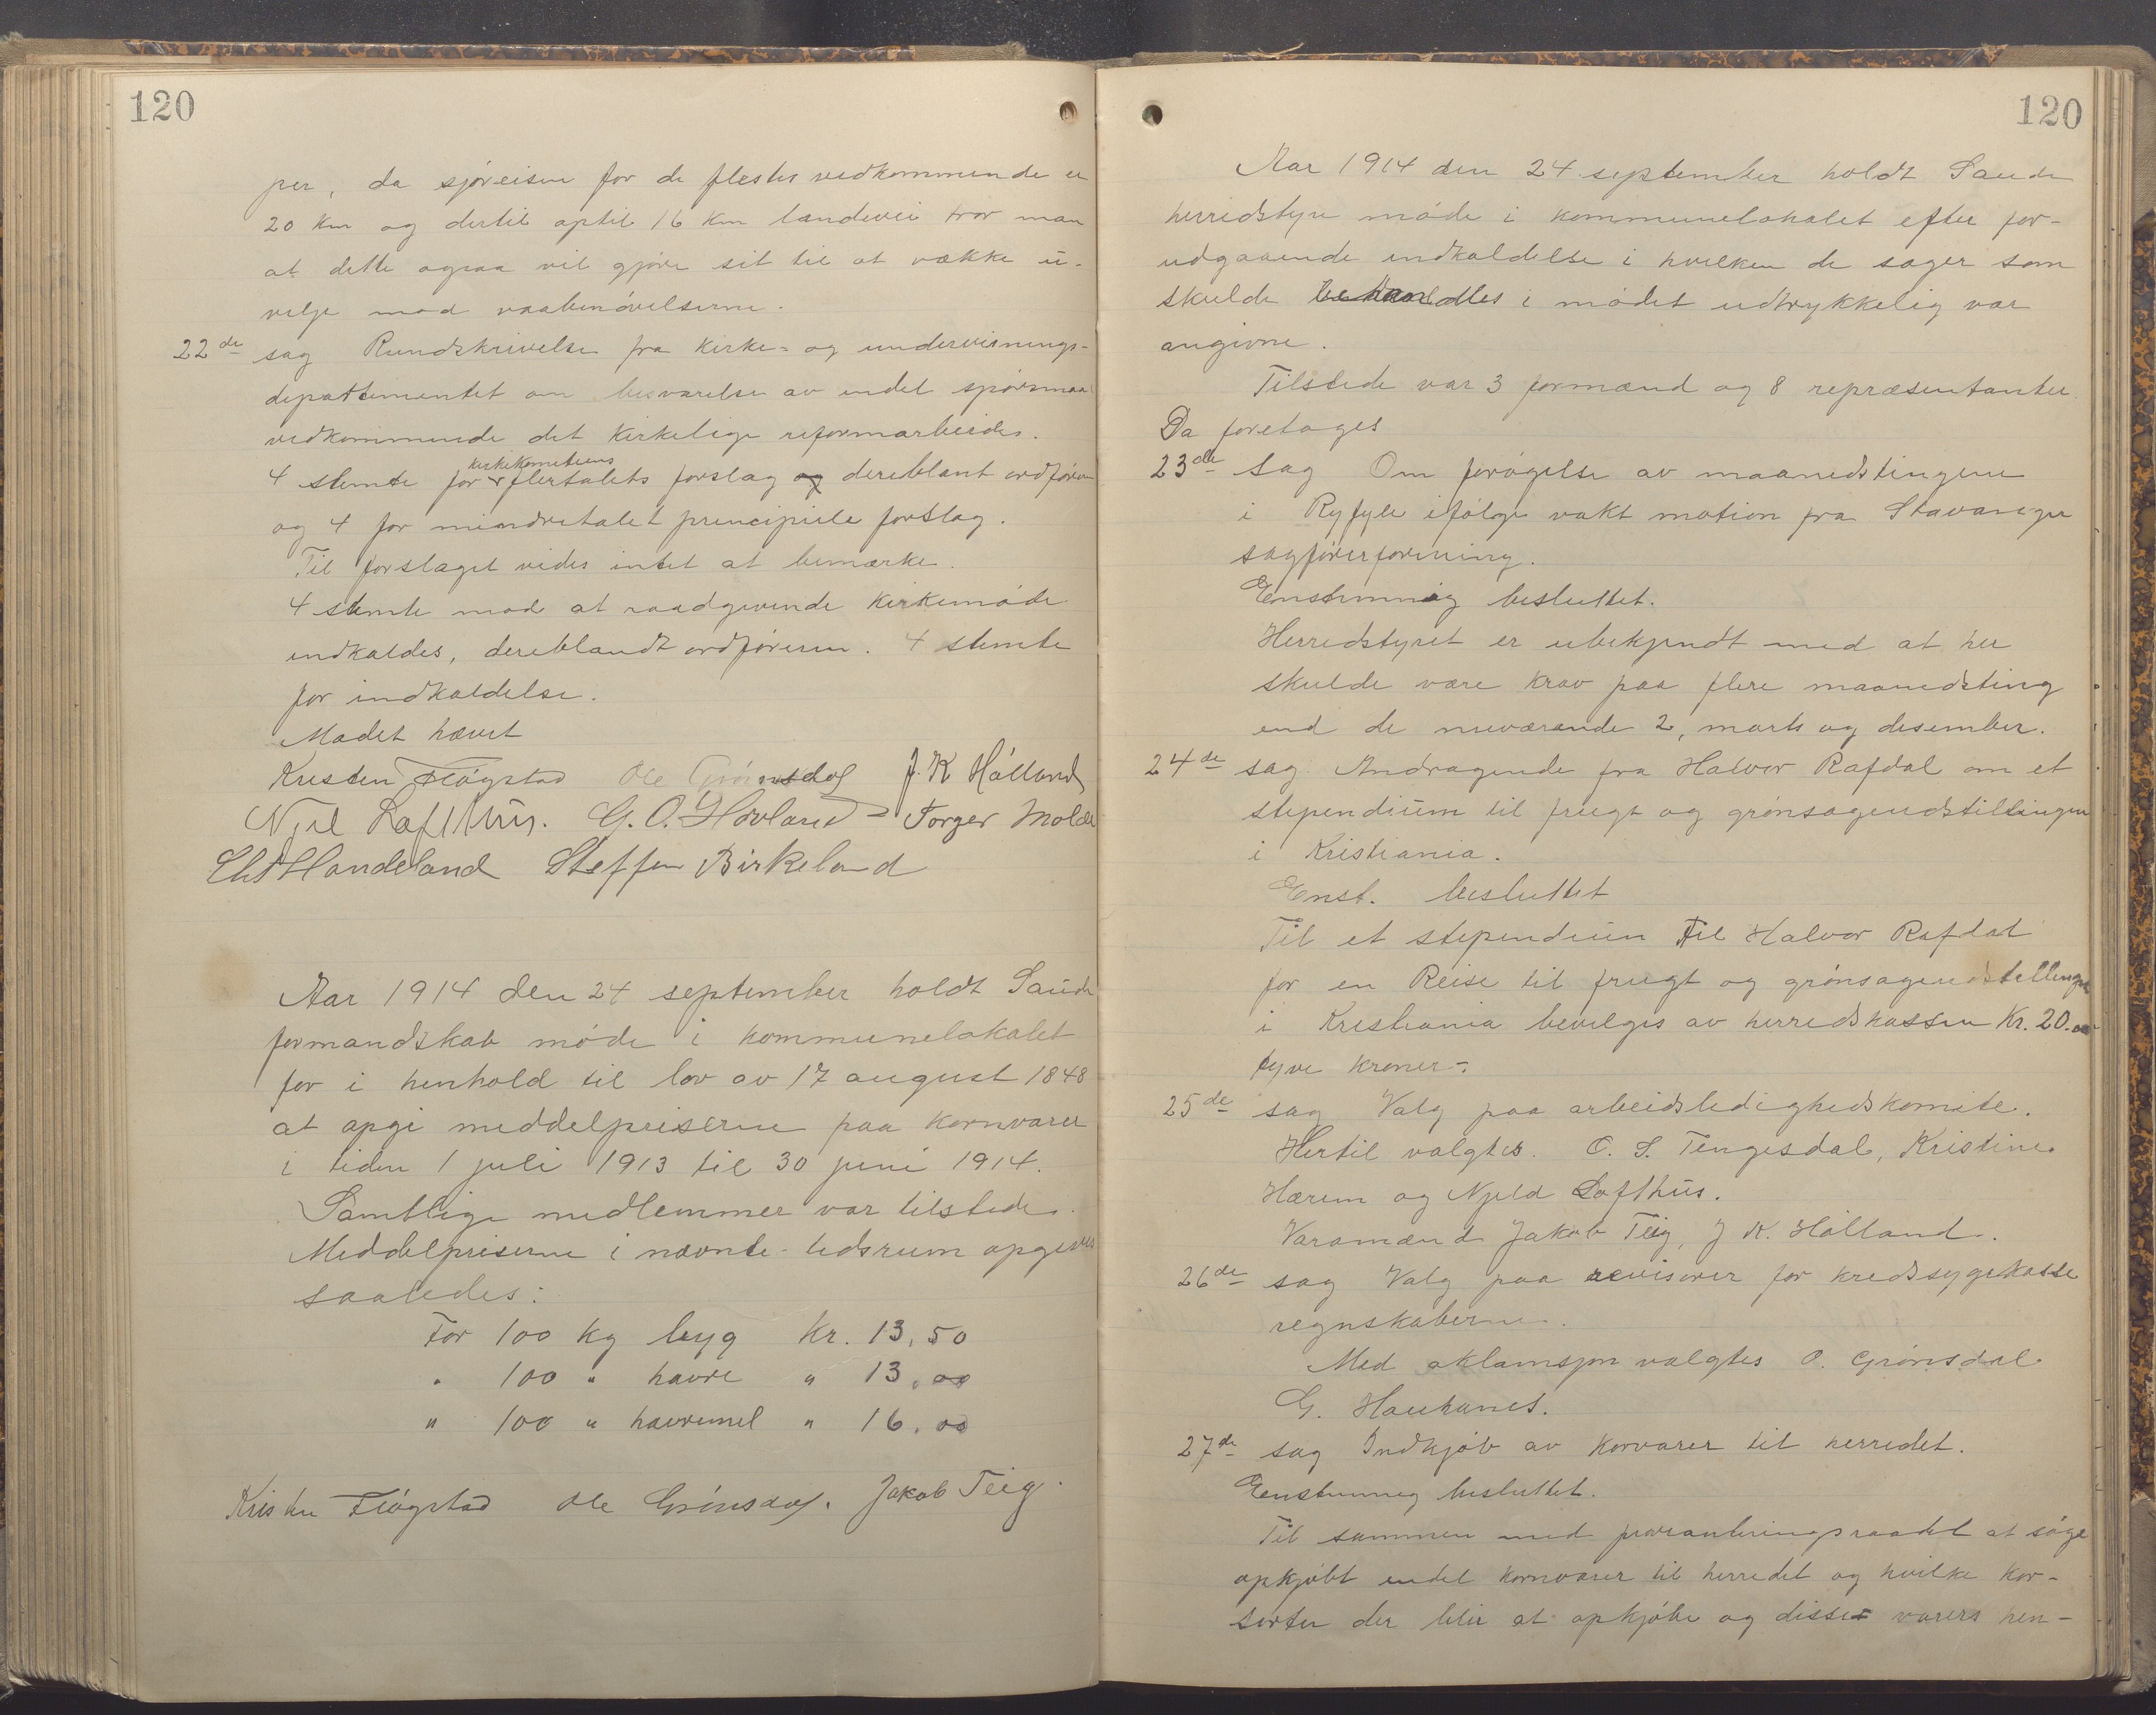 120
per, da sjøreisen for de flestes vedkommende er
20 km og dertil optil 16 km landevei tror man
at dette ogsaa vil gjøre sit til at vække u-
velje mod vaabenøvelserne.
22de sag Rundskrivelse fra Kirke- og undervisnings-
departementet om besvarelse av endel spørsmaal
vedkommende det Kirkelige reformarbeide.
4 stemte for kirkekomiteens flertalets forslag og dereblant ordføreren
og 4 for mindretalet principiele forslag.
Til forslaget vides intet at bemærke.
4 stemte mod at raadgivende kirkemøde
indkaldes, dereblandt ordføreren. 4 stemte
for indkaldelse.
Mødet hævet
Kristen Fløgstad Ole Grønsdal J. K Hålland
Njel Lofthus. G. O. Hovland Torger Molde
Chr Handeland Steffen Birkeland
Aar 1914 den 24 september holdt Saude
formandskab møde i kommunelokalet
for i henhold til lov av 17 august 1848
at opgi meddelpriserne paa kornvarer
i tiden 1 juli 1913 til 30 juni 1914.
Samtlige medlemmer var tilstede.
Meddelpriserne i nævnte tidsrum opgives
saaledes:
For 100 kg byg Kr. 13,50
" 100 " havre " 13,00
" 100 " havremel " 16,00
Kristen Fløgstad Ole Grønsdal. Jakob Teig.
120
Aar 1914 den 24 september holdt Saude
herredstyre møde i kommunelokalet efter for-
udgaaende indkaldelse i hvilken de sager som
skulde behandles i mødet udtrykkelig var
angivne.
Tilstede var 3 formænd og 8 repræsentanter.
Da foretoges
23de sag Om forøgelse av maanedstingene
i Ryfylke ifølge vakt motion fra Stavanger
sagførerforening.
Enstemmig besluttet.
Herredstyret er ubekjendt med at her
skulde være krav paa flere maanedsting
end de nuværende 2, marts og desember.
24de sag Andragende fra Halvor Rafdal om et
stependium til frugt og grønsagudstillingen
i Kristiania.
Enst. besluttet
Til et stependium til Halvor Rafdal
for en Reise til frugt og grønsagudstillingen
i Kristiania bevilges av herredskassen Kr. 20.00
tyve kroner-.
25de sag Valg paa arbeidsledighedskomite.
Hertil valgtes. O. S. Tengesdal, Kristine
Hærem og Njeld Lofthus.
Varamænd Jakob Teig, J K. Hålland.
26de sag Valg paa revisorer for kredssygekasse
regnskaberne.
Med aklamsjon valgtes O. Grønsdal
G. Haukanes.
27de sag Indkjøb av Kornvarer til herredet.
Eenstemmig besluttet.
Til sammen med provianteringsraadet at søge
opkjøbt endel kornvarer til herredet og hvilke kor-
sorter der blir at opkjøbe og disses varers hen-